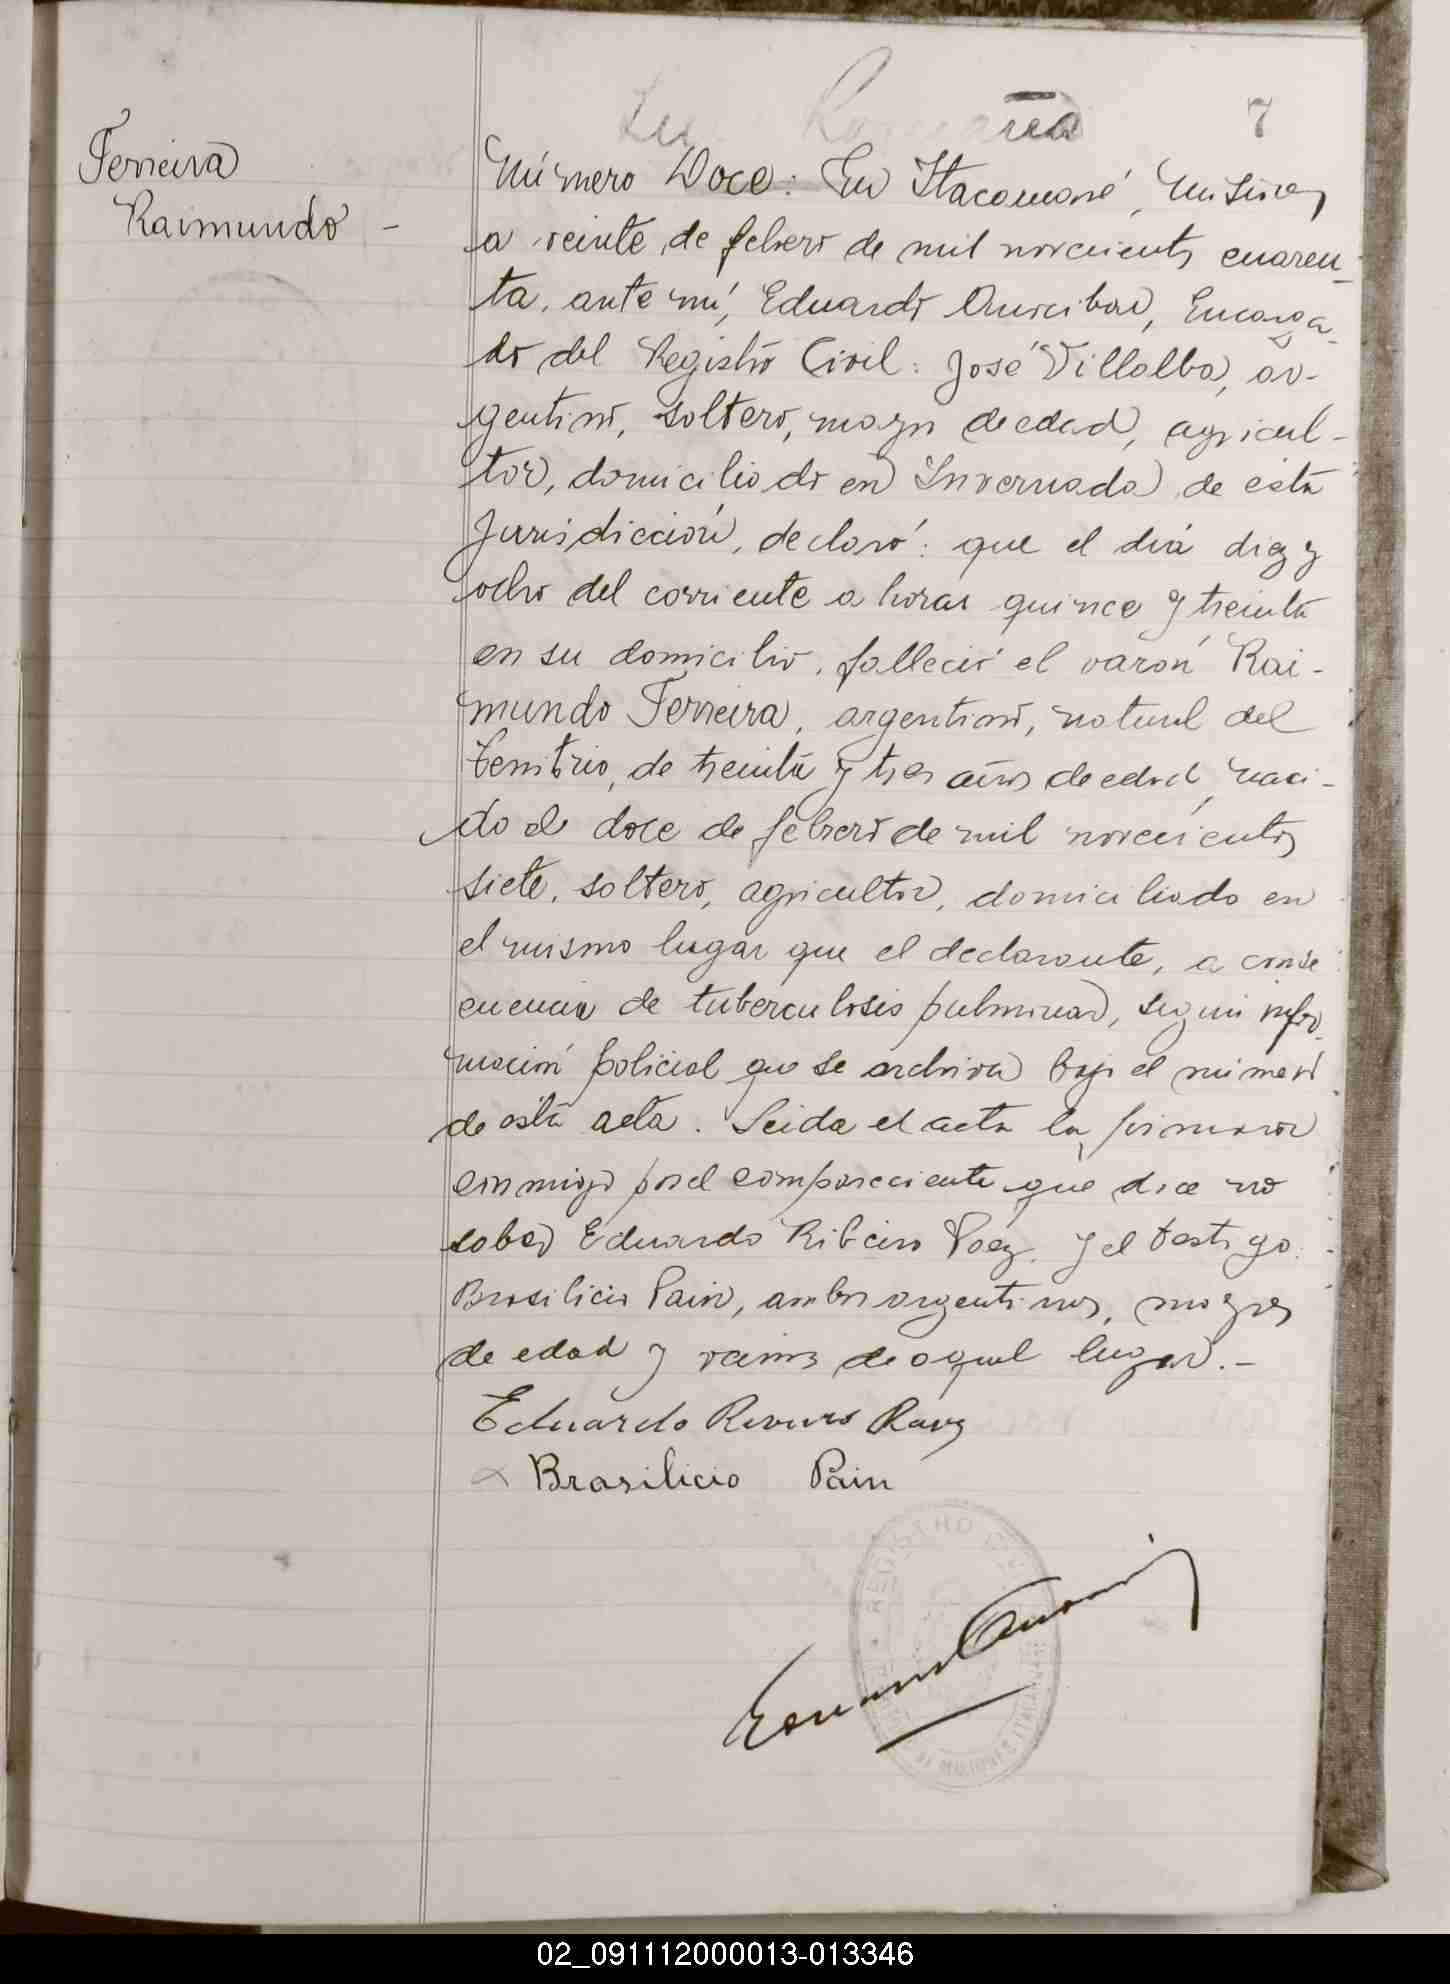 7
Ferreira
Raimundo -
Número Doce: En Itacaruaré, Misiones
a veinte de febrero de mil novecientos cuaren-
ta, ante mí, Eduardo Encarga-
do del Registro Civil: José Villalba, ar-
gentino, soltero, mayor de edad, agricul-
tor, domiciliado en Invernada de esta
Jurisdicción, declaró: que el día diez y
ocho del corriente a horas quince y treinta
en su domicilio, falleció el varón Rai-
mundo Ferreira, argentino, natural del
Territorio, de treinta y tres años de edad, naci-
do el doce de febrero de mil novecientos
siete, soltero, agricultor, domiciliado en
el mismo lugar que el declarante, a conse
cuencia de tuberculosis pulmonar, según infor-
mación policial que se archiva bajo el número
de esta acta. Leida el acta la firmaron
conmigo por el compareciente que dice no
saber Eduardo Ribeiro Paez y el testigo:
Brasilicio Pain, ambos argentinos, mayores
de edad y vecinos de aquel lugar.-
Eduardo
Brasilicio Pain
REGISTRO
02_091112000013-013346